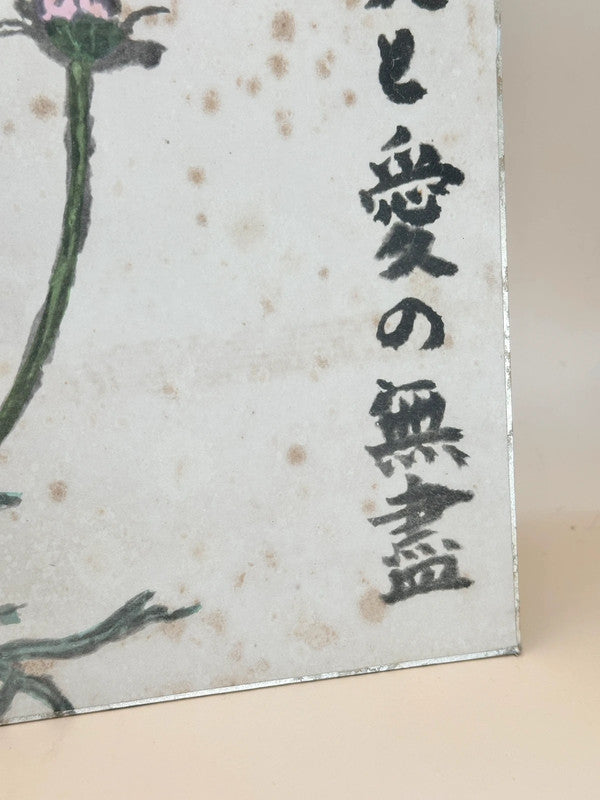 と愛の無盡